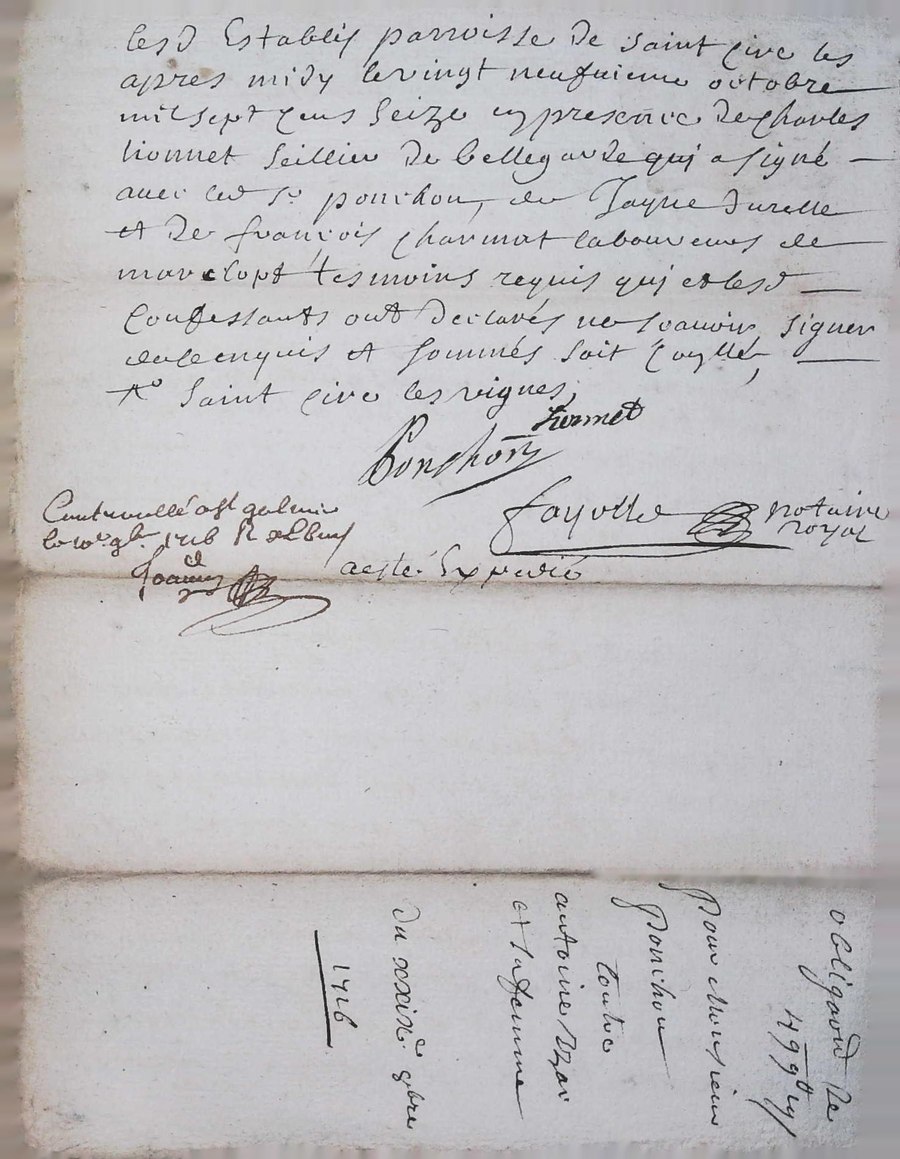 lesd Establis parroisse de saint Cire les
apres midy le vingt neufuieme octobre
mil sept Cens Seize en presence de Charles
lionnet Seillier de bellegarde qui a signé
avec led Sr ponchon, de
et de françois Charmat laboureurs de
marclopt tesmoins requis qui et lesd
Confessants ont declarés ne scavoir signer
de ce enquis et sommés soit
saint Cire les vignes,
Lionnet
Ponchon
fayolle notaire
royal
Contrerollé a st galmier
le 10e 9bre 1716 R
a esté Expedié
obligaõn de
pour Monsieur
ponchon
contre
antoine
et sa femme
du xxixe 8bre
1716